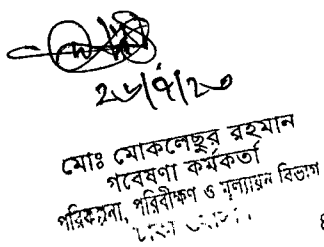 ২৮/৫/২৩
মোঃ মোকলেছুর রহমান
গবেষণা কর্মকর্তা
পরিকল্পনা, পরিবীক্ষণ ও মূল্যায়ন বিভাগ